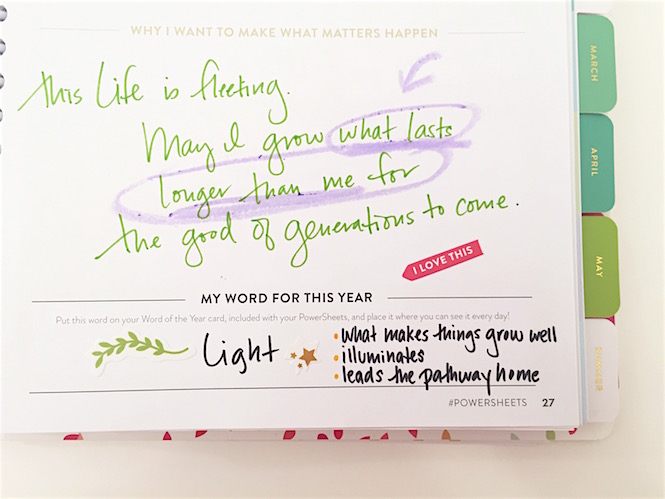 WHY I WANT TO MAKE WHAT MATTERS HAPPEN
this life is fleeting.
May I grow what lasts
longer than me for
the good of generations to come.
I LOVE THIS
MY WORD FOR THIS YEAR
Put this word on your Word of the Year card, included with your PowerSheets, and place it where you can see it every day!
light
• what makes things grow well
• illuminates
• leads the pathway home
#POWERSHEETS 27
MARCH
APRIL
MAY
SUMMER